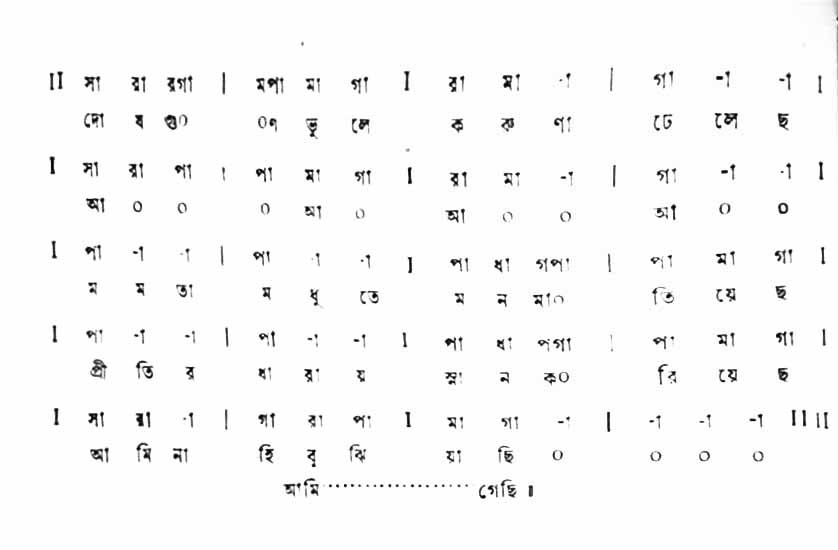 II সা রা রগা | মপা মা গা I রা মা -া | গা -া -া I
দো ষ গু০ ০ণ ভু লে ক রু ণা ঢে লে ছ
I সা রা পা | পা মা গা I রা মা -া | গা -া -া I
আ ০ ০ ০ আ ০ আ ০ ০ আ ০ ০
I পা -া -া | পা -া -া I পা ধা গপা | পা মা গা I
ম ম তা ম ধু তে ম ন মা০ তি য়ে ছ
I পা -া -া | পা -া -া I পা ধা পগা | পা মা গা I
প্রী তি র ধা রা য় স্না ন ক০ রি য়ে ছ
I সা রা -া | গা রা পা I মা গা -া | -া -া -া II II
আ মি না হি বু ঝি য়া ছি ০ ০ ০ ০
আমি····················গেছি ॥